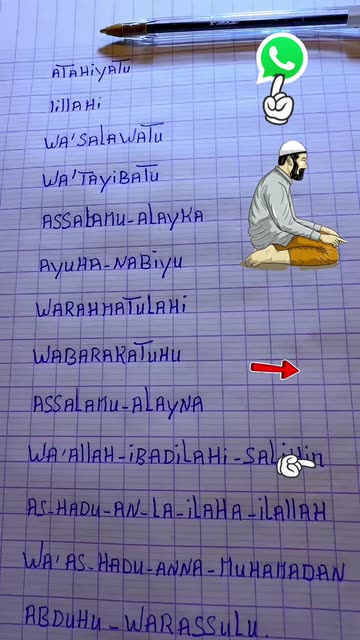 ATAHiYATU
lillAHi
WA'SALAWATU
WA'TAYiBATU
ASSALAMU-ALAYKA
AYUHA-NABiYU
WARAHMATULAHi
WABARAKATUHU
ASSALAMU-ALAYNA
WA'AllAH-iBADiLAHi-SALiHiN
AS-HADU-AN-LA-iLAHA-iLALLAH
WA'AS-HADU-ANNA-MUHAMADAN
ABDUHU-WARASSULU